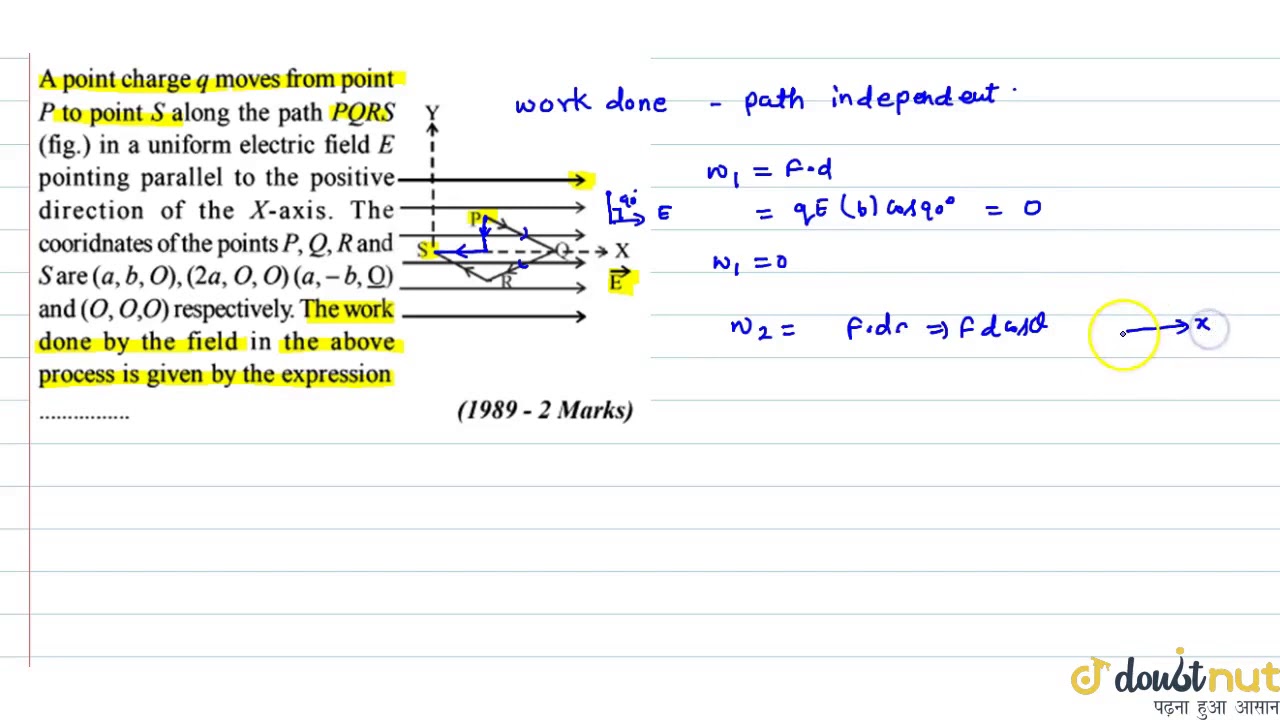 A point charge q moves from point
P to point S along the path PQRS
(fig.) in a uniform electric field E
pointing parallel to the positive
direction of the X-axis. The
cooridnates of the points P, Q, R and
S are (a, b, O), (2a, O, O) (a, – b, O)
and (O, O,O) respectively. The work
done by the field in the above
process is given by the expression
................
(1989 - 2 Marks)
Y
P
S
Q
X
R
E
work done - path independent.
90°
E
W₁ = F.d
= qE (b) cos90° = 0
W₁ = 0
W₂ = F.dr ⇒ F d cosθ
x
doubtnut
पढ़ना हुआ आसान